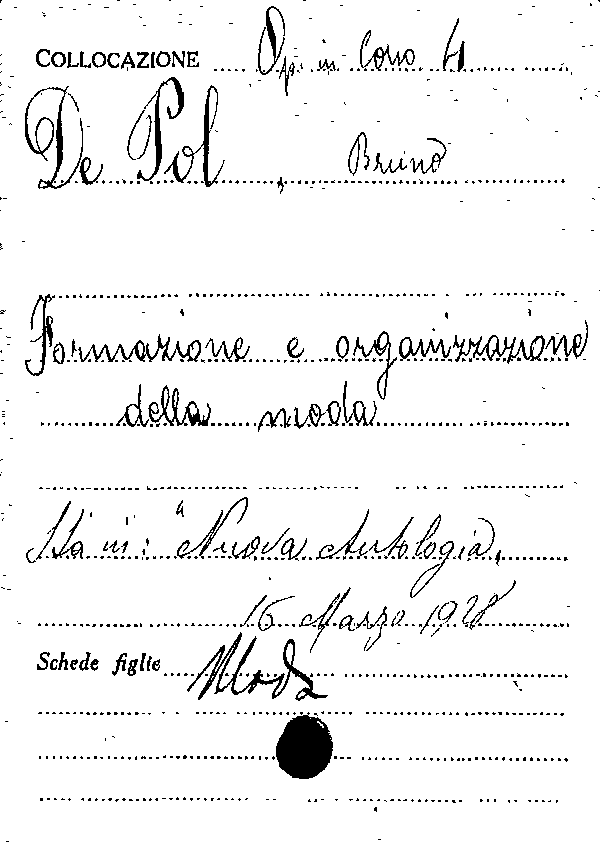 COLLOCAZIONE Op. in Corso 4
De Pol, Bruno
Formazione e organizzazione
della moda
Sta in: "Nuova Antologia,
16 Marzo 1928
Schede figlie Moda